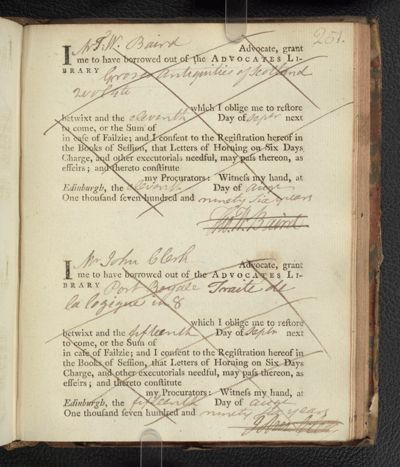 251.
I Mr T. W. Baird Advocate, grant
me to have borrowed out of the ADVOCATES LI-
BRARY Groses antiquities of Scotland
2 vol 4to
which I oblige me to reſtore
betwixt and the eleventh Day of Septr next
to come, or the Sum of
in caſe of Failzie; and I conſent to the Regiſtration hereof in
the Books of Seſſion, that Letters of Horning on Six Days
Charge, and other executorials needful, may paſs thereon, as
effeirs; and thereto conſtitute
my Procurators: Witneſs my hand, at
Edinburgh, the eleventh Day of augt
One thouſand ſeven hundred and ninety six years
W. Baird
I Mr John Clerk Advocate, grant
me to have borrowed out of the ADVOCATES LI-
BRARY Port Royale Traite de
la logique in 8
which I oblige me to reſtore
betwixt and the fifteenth Day of Septr next
to come, or the Sum of
in caſe of Failzie; and I conſent to the Regiſtration hereof in
the Books of Seſſion, that Letters of Horning on Six Days
Charge, and other executorials needful, may paſs thereon, as
effeirs; and thereto conſtitute
my Procurators: Witneſs my hand, at
Edinburgh, the fifteenth Day of augt
One thouſand ſeven hundred and ninety six years
John Clerk